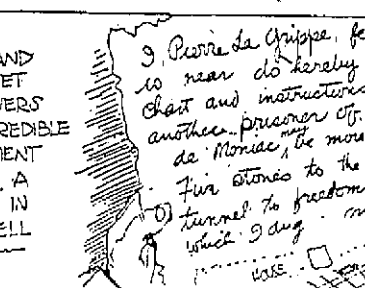 AND
ET
VERS
REDIBLE
MENT
. A
IN
ELL
I, Pierre La Grippe, fe
so near do hereby
chart and instructions
another prisoner of
de Moniac, may be mor
Five stones to the
tunnel to freedom
which I dug.